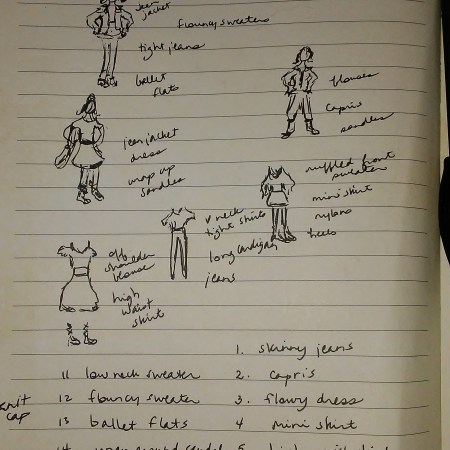 jean
jacket
flouncy sweaters
tight jeans
ballet
flats
blouses
capris
sandles
jean jacket
dress
wrap up
sandles
ruffled front
sweater
mini skirt
nylons
heels
v neck
tight shirts
long cardigan
jeans
off
shoulder
blouse
high
waist
skirt
1. skinny jeans
11 low neck sweater
2. capris
knit
cap
12 flouncy sweater
3. flowy dress
13 ballet flats
4 mini skirt
14
5